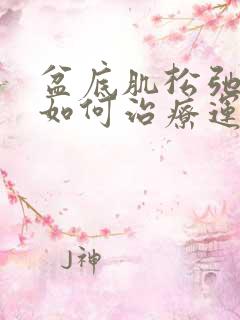 盆底肌松弛
如何治療運
J神